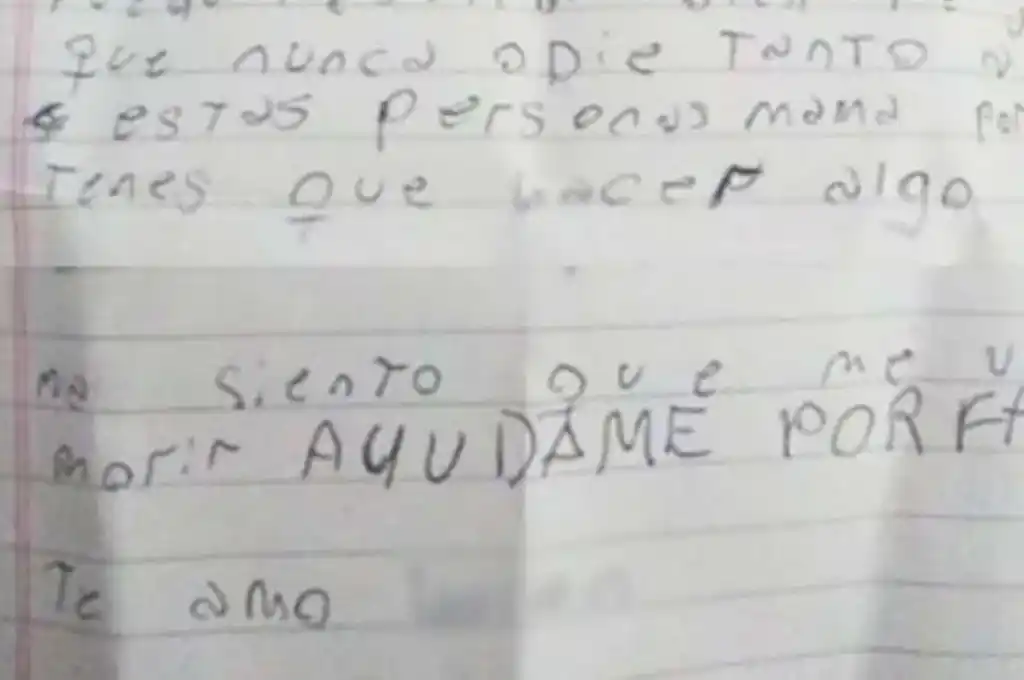 que nunca oDie TanTo a
estas personas mama por
Tenes que hacer algo
ma siento que me v
morir AYUDAME POR FA
Te amo